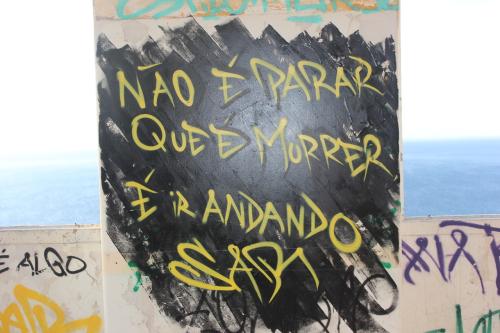 NÃO É PARAR
QUE É MORRER
É iR ANDANDO
É ALGO